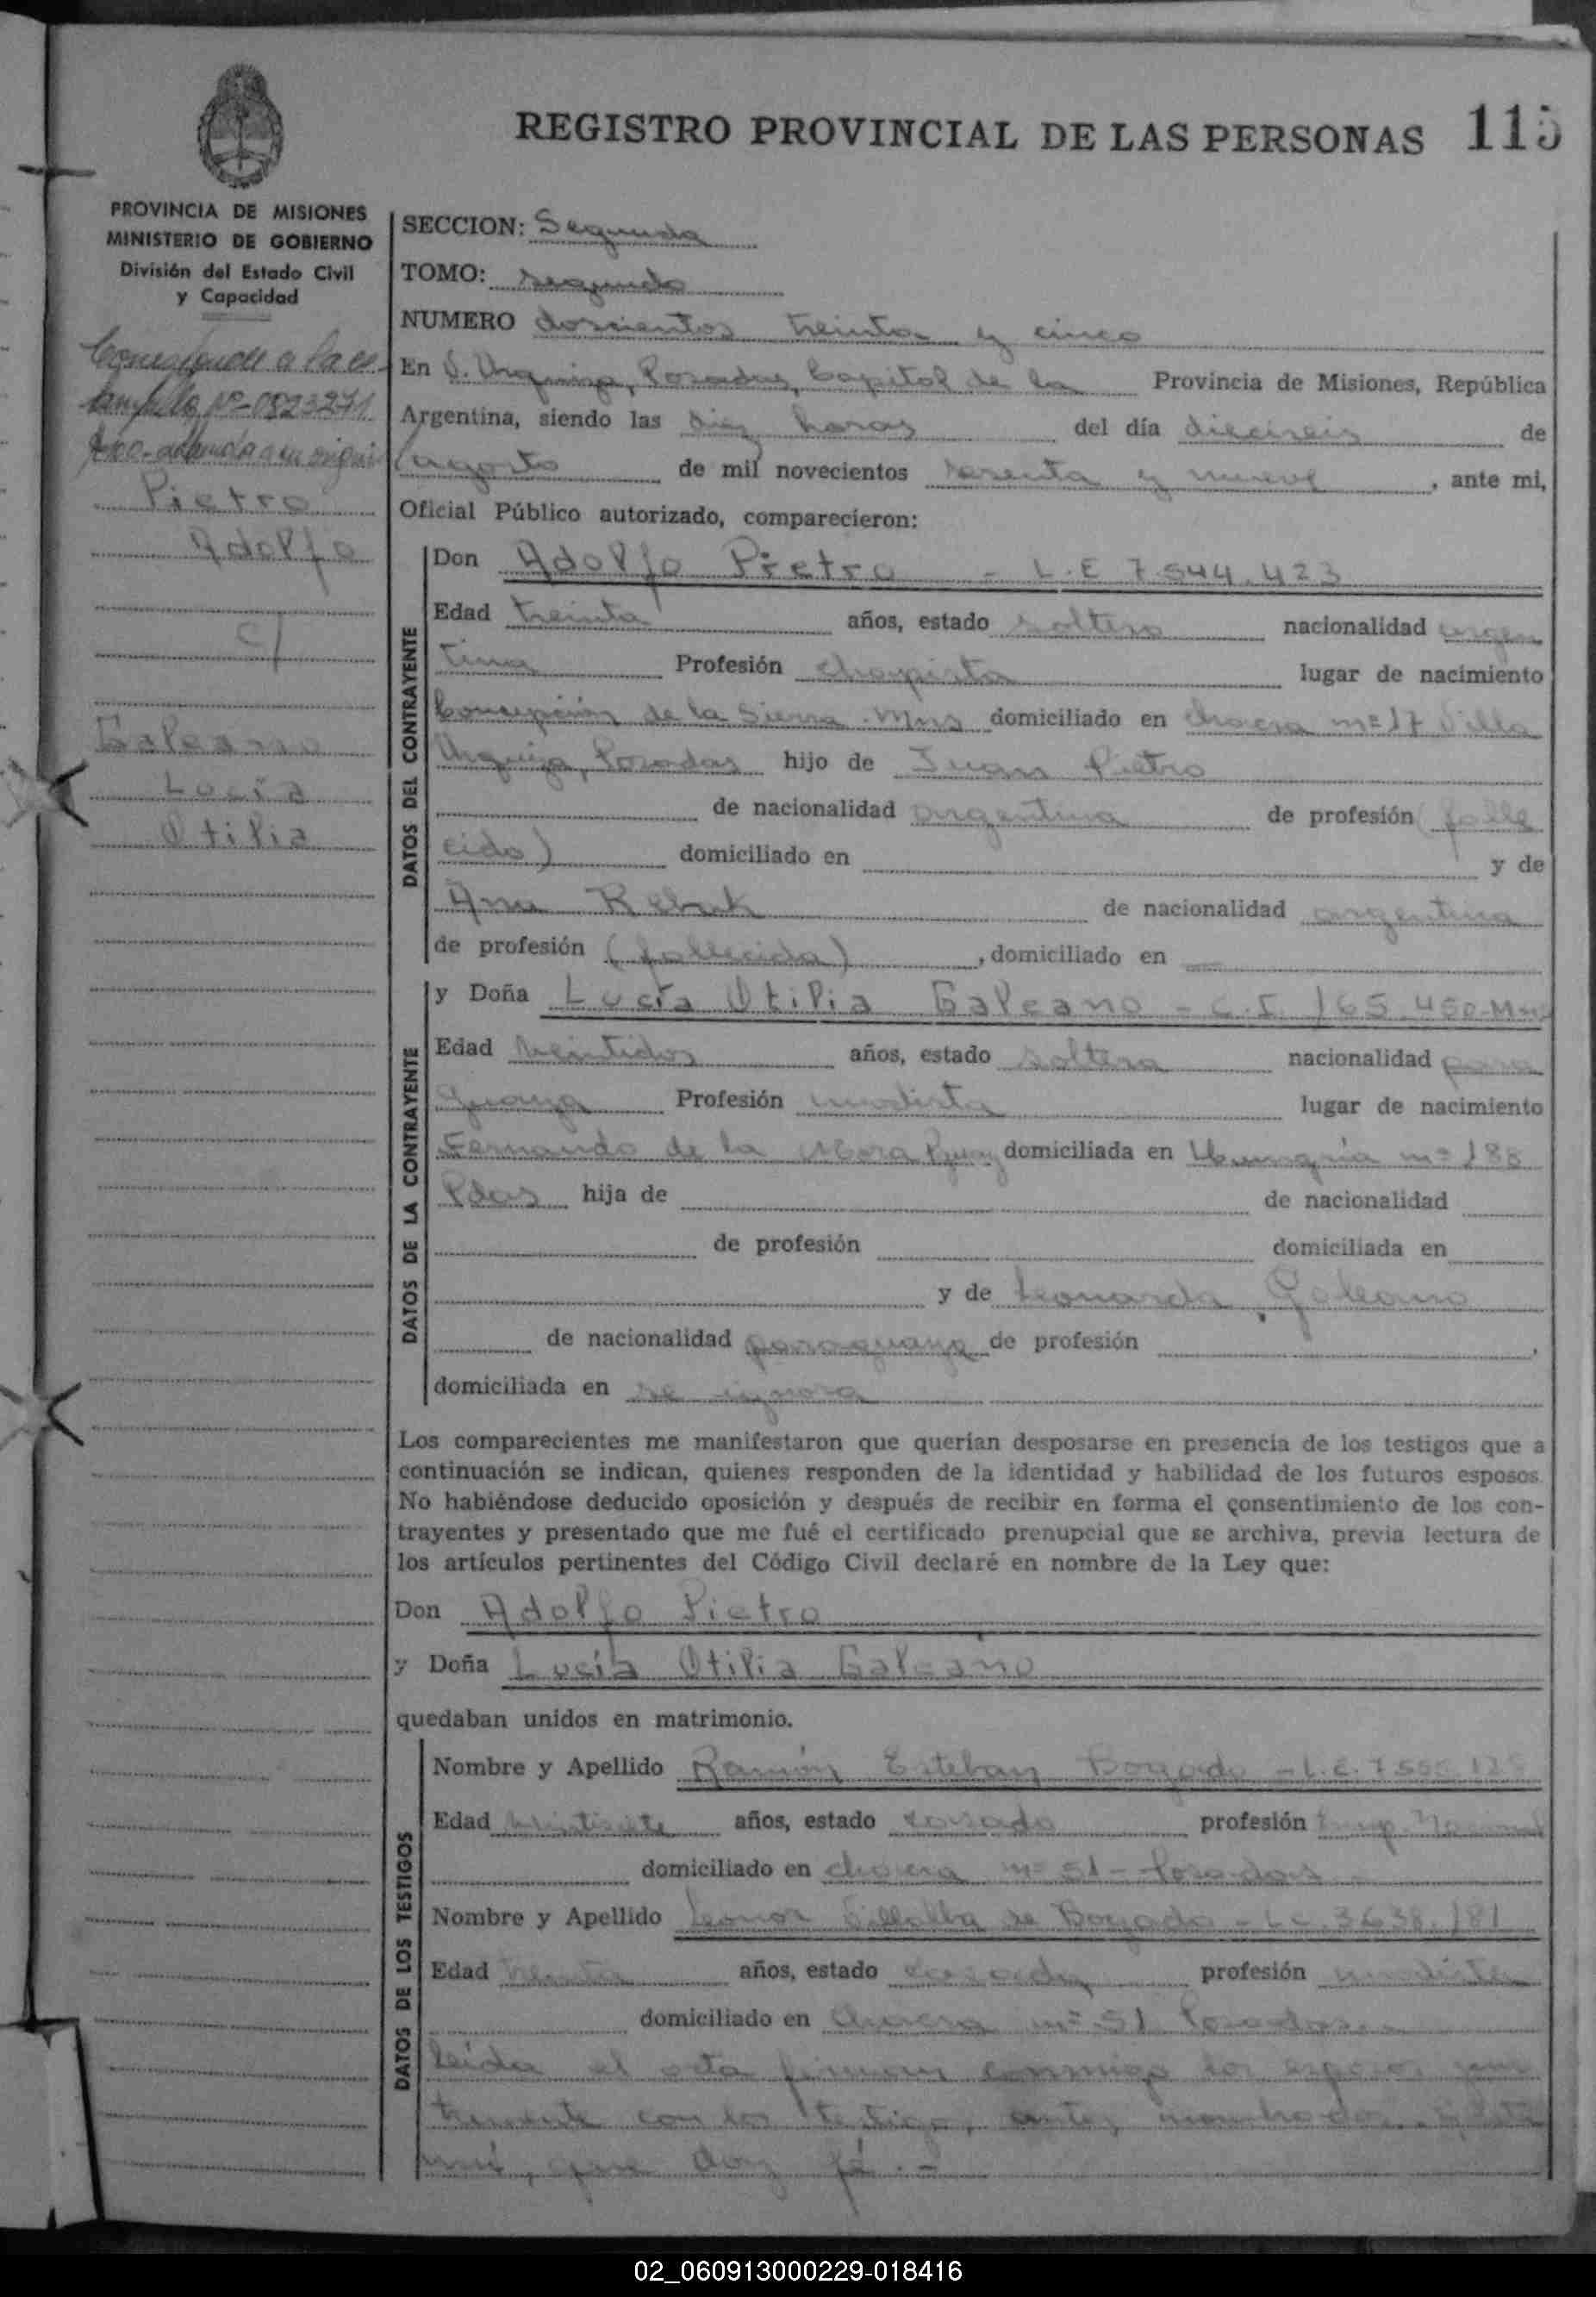 REGISTRO PROVINCIAL DE LAS PERSONAS 115
PROVINCIA DE MISIONES
MINISTERIO DE GOBIERNO
División del Estado Civil
y Capacidad
Corresponde a la es
tampilla Nº 0823271
Pietro
Adolfo
c/
Galeano
Lucía
Otilia
SECCION: Segunda
TOMO: segundo
NUMERO doscientos treinta y cinco
En V. Urquiza, Posadas, Capital de la Provincia de Misiones, República
Argentina, siendo las diez horas del día dieciseis de
agosto de mil novecientos sesenta y nueve, ante mi,
Oficial Público autorizado, comparecieron:
DATOS DEL CONTRAYENTE
Don Adolfo Pietro - L.E 7.544.423
Edad treinta años, estado soltero nacionalidad argen
tina Profesión chapista lugar de nacimiento
Concepción de la Sierra. Mns domiciliado en chacra nº 17 Villa
Urquiza, Posadas hijo de Juan Pietro
de nacionalidad argentina de profesión (falle
cido) domiciliado en y de
Ana de nacionalidad argentina
de profesión (fallecida), domiciliado en
DATOS DE LA CONTRAYENTE
y Doña Lucía Otilia Galeano - C.I. 165.450-Mns
Edad veintidos años, estado soltera nacionalidad para
guaya Profesión modista lugar de nacimiento
Fernando de la Mora Pguay domiciliada en Hungría nº 188
Pdas hija de de nacionalidad
de profesión domiciliada en
y de Leonarda Galeano
de nacionalidad paraguaya de profesión ,
domiciliada en se ignora
Los comparecientes me manifestaron que querían desposarse en presencia de los testigos que a
continuación se indican, quienes responden de la identidad y habilidad de los futuros esposos.
No habiéndose deducido oposición y después de recibir en forma el consentimiento de los con-
trayentes y presentado que me fué el certificado prenupcial que se archiva, previa lectura de
los artículos pertinentes del Código Civil declaré en nombre de la Ley que:
Don Adolfo Pietro
y Doña Lucía Otilia Galeano
quedaban unidos en matrimonio.
DATOS DE LOS TESTIGOS
Nombre y Apellido Ramón Esteban Bogado - L.E. 
Edad veintisiete años, estado casado profesión Emp. Nacional
domiciliado en chacra nº 51 - Posadas
Nombre y Apellido Leonor Villalba de Bogado - L.C. 3.638.181
Edad treinta años, estado casada profesión modista
domiciliado en Chacra nº 51 Posadas
leída el acta firman conmigo los esposos jun
tamente con los testigos antes nombrados. Ante
mí, que doy fé.-
02_060913000229-018416